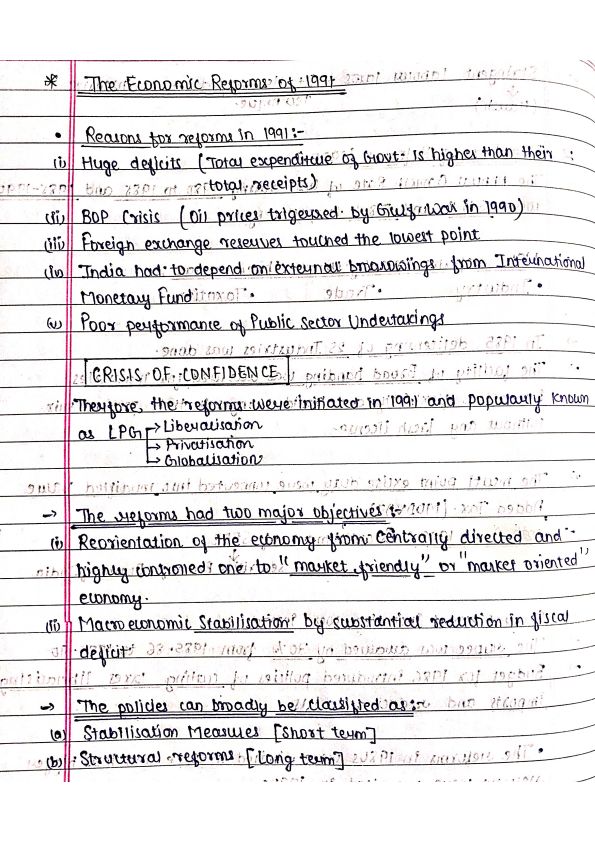 * The Economic Reforms of 1991
• Reasons for reforms in 1991:-
(i) Huge deficits (Total expenditure of Govt. is higher than their
total receipts)
(ii) BOP Crisis (Oil prices trigeused by Gulf War in 1990)
(iii) Foreign exchange reserves touched the lowest point
(iv) India had to depend on external borrowings from International
Monetary Fund.
(v) Poor performance of Public Sector Undertakings
CRISIS OF CONFIDENCE
Therfore, the reforms were initiated in 1991 and popularly known
as LPG → Liberalisation
→ Privatisation
→ Globalisation
→ The reforms had two major objectives :-
(i) Reorientation of the economy from centrally directed and
highly controlled one to "market friendly" or "market oriented"
economy.
(ii) Macroeconomic Stabilisation by substantial reduction in fiscal
deficit
→ The policies can broadly be classified as:-
(a) Stabilisation Measures [Short term]
(b) Structural reforms [Long term]